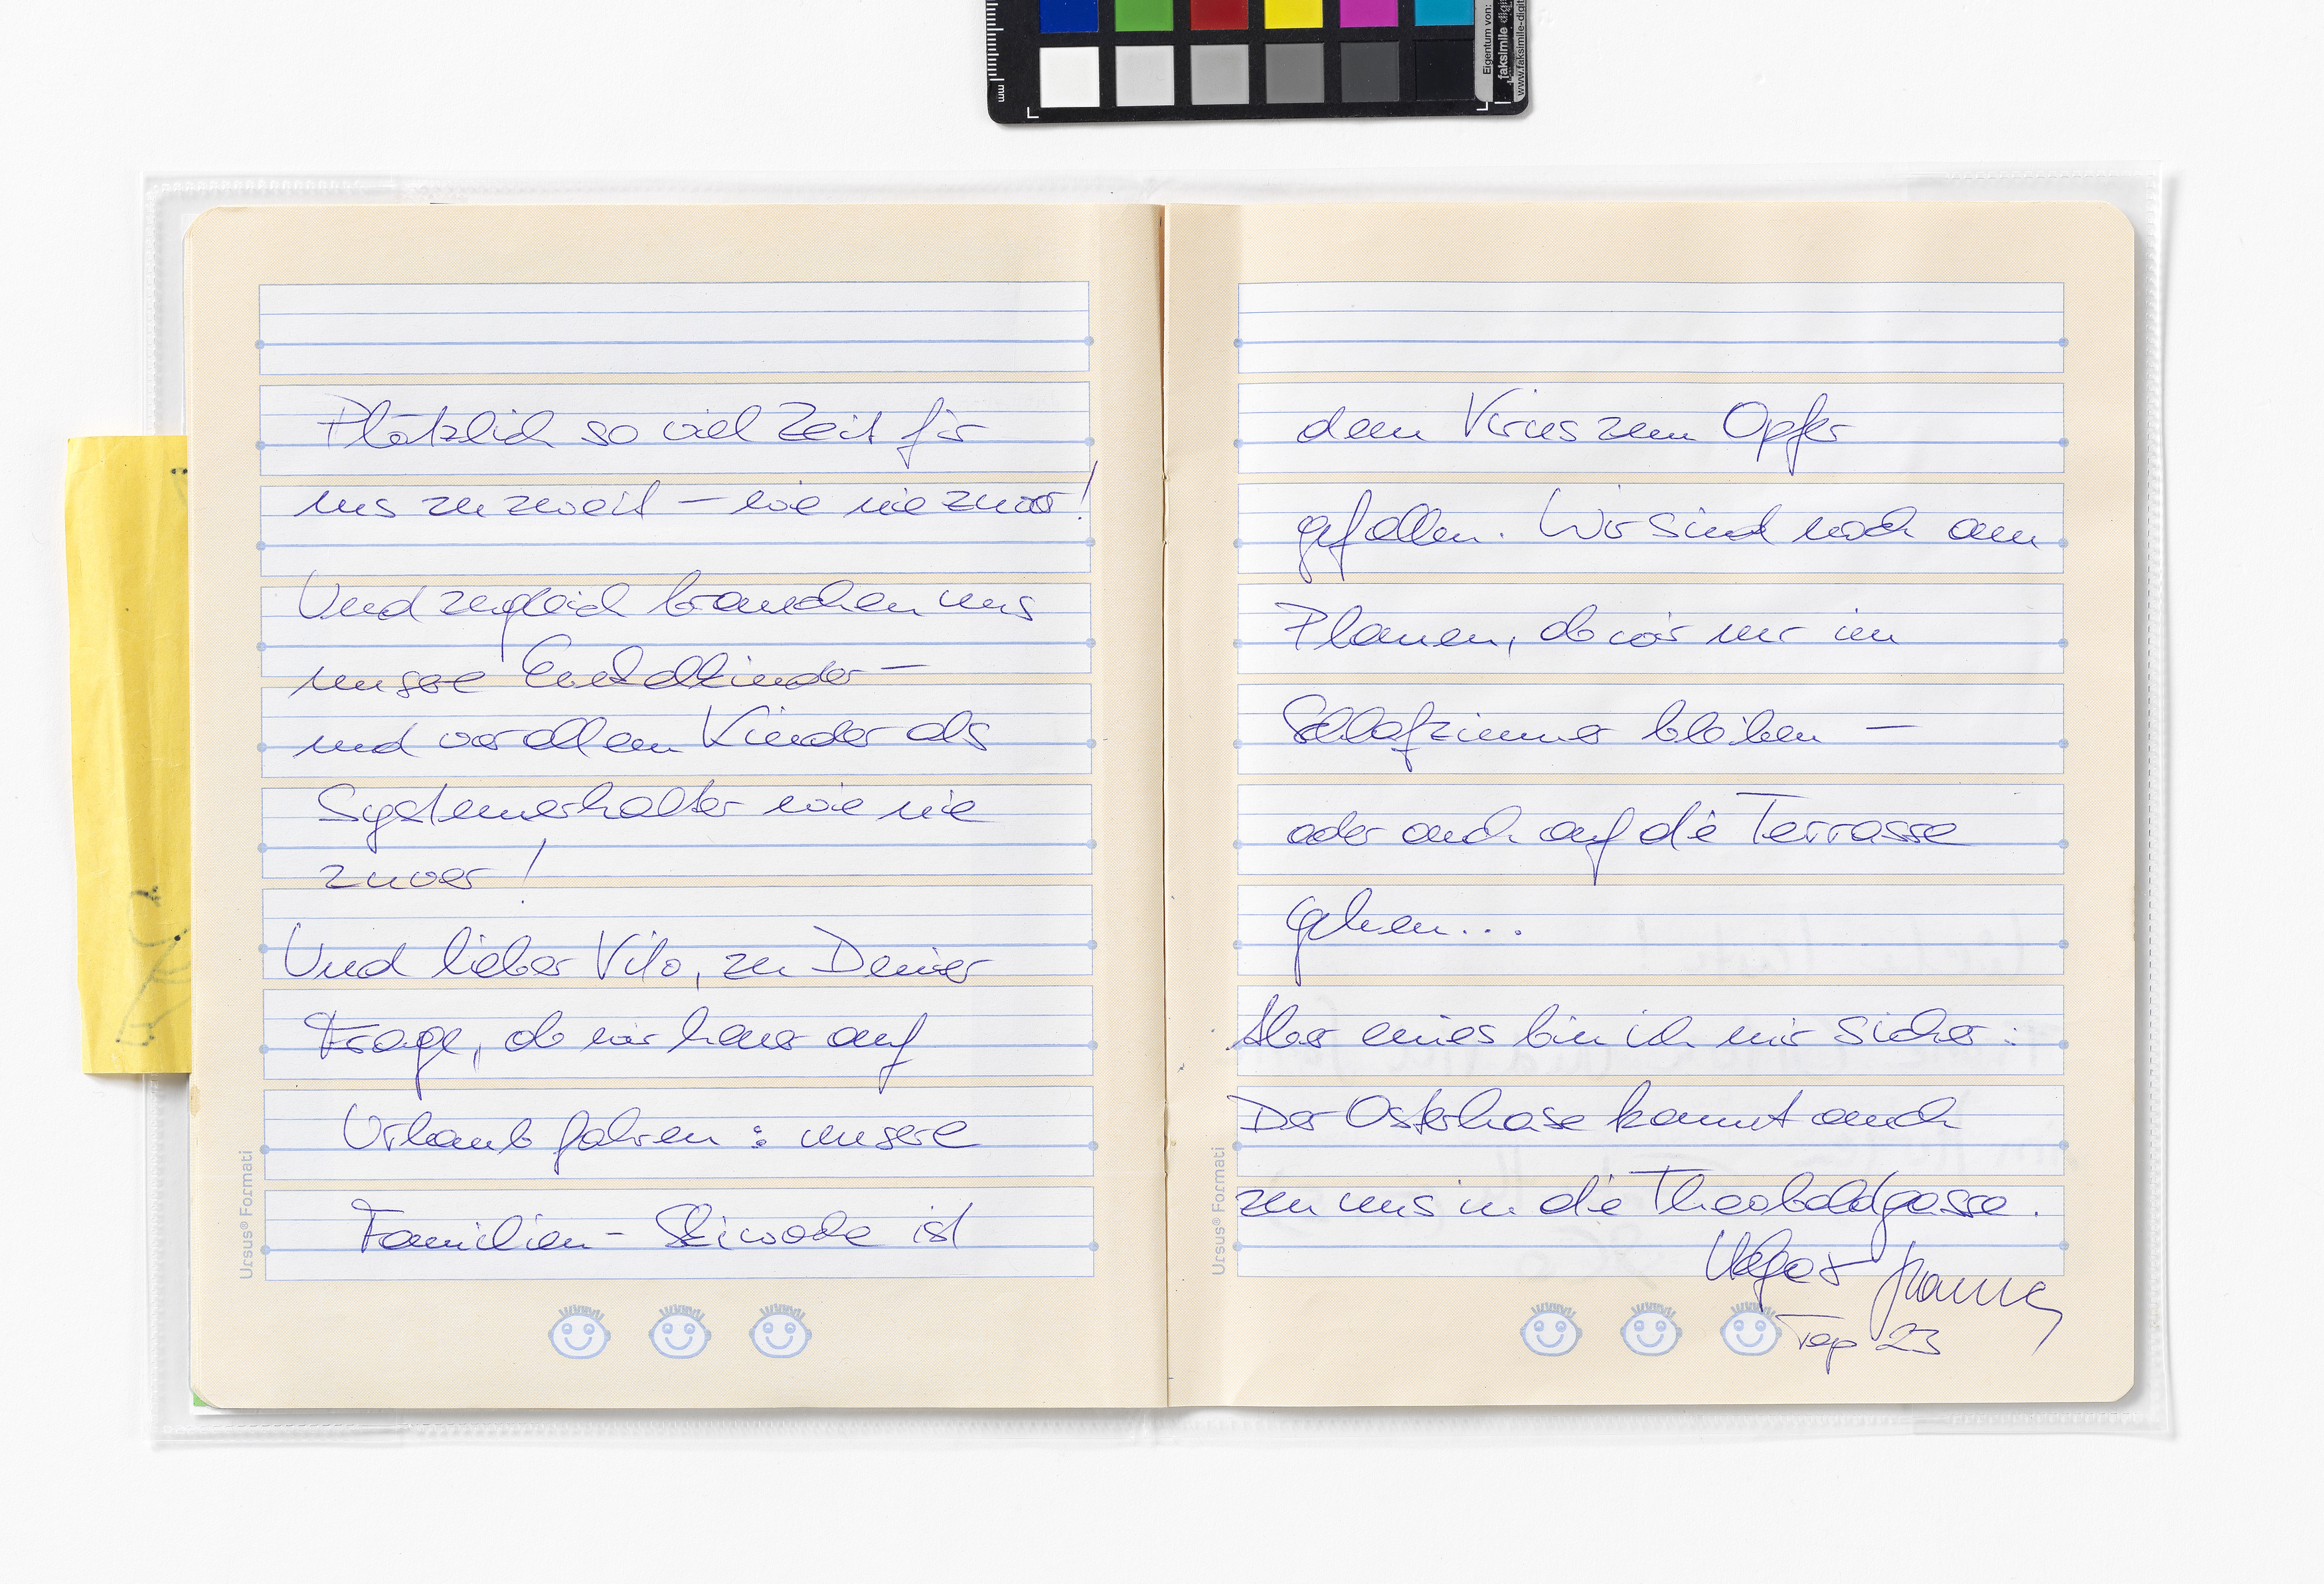 Eigentum von:
faksimile digital
www.faksimile-digit
mm
Plötzlich so viel Zeit für
uns zu zweit – wie nie zuvor!
Und zugleich brauchen uns
unsere Enkelkinder –
und vor allem Kinder als
Systemerhalter wie nie
zuvor!
Und lieber Vito, zu Deiner
Frage, ob wir heuer auf
Urlaub fahren: unsere
Familien-Skiwoche ist
Ursus® Formati
dem Virus zum Opfer
gefallen. Wir sind noch am
Planen, ob wir nur im
Schlafzimmer bleiben –
oder auch auf die Terrasse
gehen...
Aber eines bin ich mir sicher:
Der Osterhase kommt auch
zu uns in die Theobaldgasse.
Top 23
Ursus® Formati